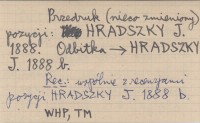 Przedruk (nieco zmieniony)
pozycji: HRADSZKY J.
1888. Odbitka → HRADSZKY
J. 1888 b.
Rec.: wspólne z recenzjami
pozycji HRADSZKY J. 1888 b.
WHP, TM